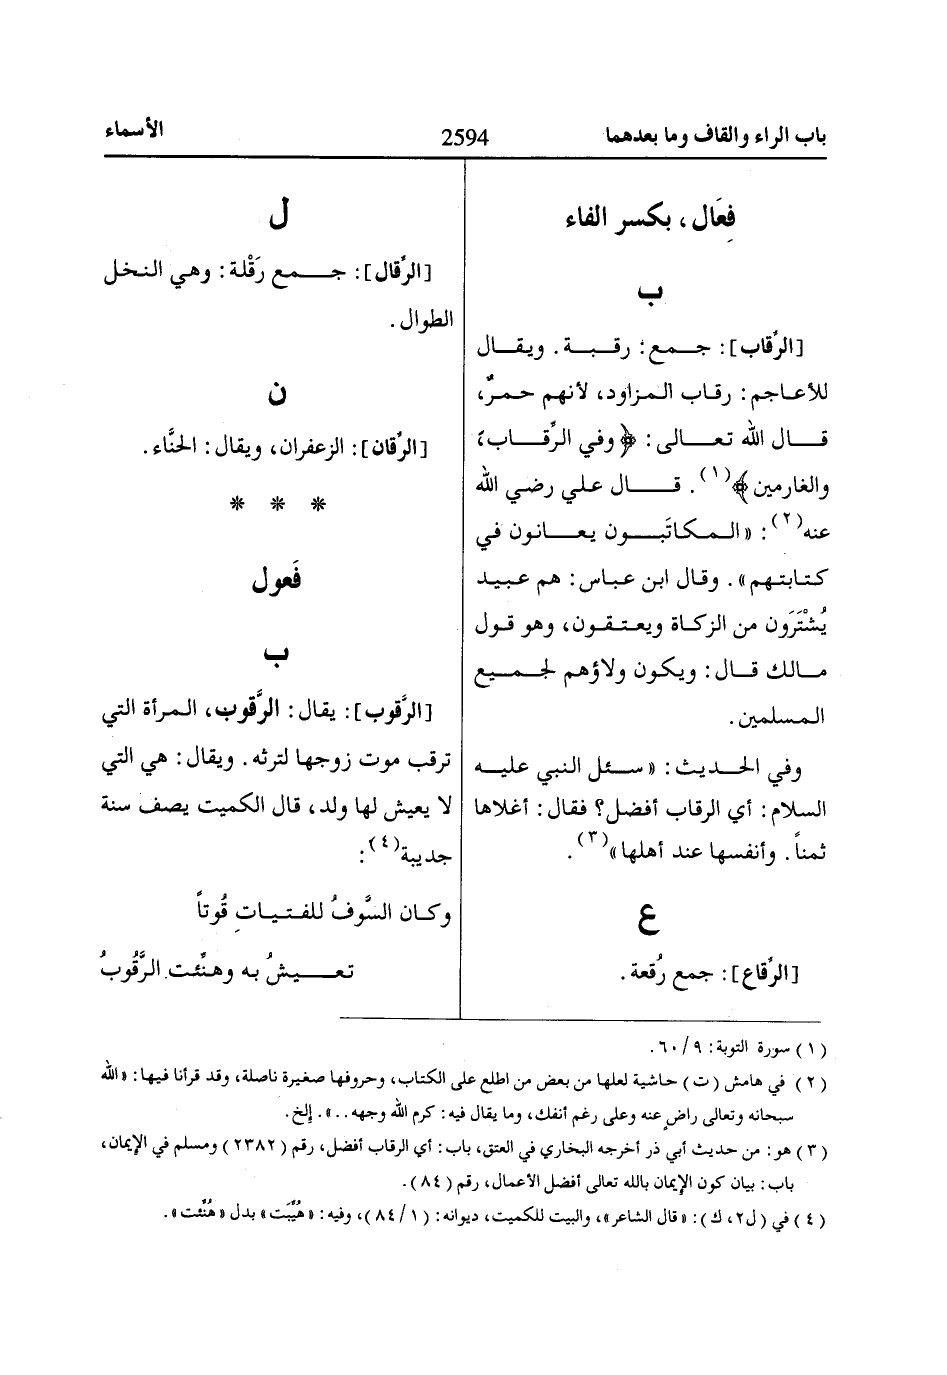 باب الراء والقاف وما بعدهما
2594
الأسماء
فِعَال ، بكسر الفاء
ب
[الرِّقاب] : جمع : رقبة . ويقال
للأعاجم : رقاب المزاود، لأنهم حمرٌ،
قال الله تعالى : ﴿وفي الرِّقاب؛
والغارمين﴾(١). قال علي رضي الله
عنه(٢): «المكاتَبون يعانون في
كتابتهم» . وقال ابن عباس : هم عبيد
يُشْتَرَون من الزكاة ويعتقون، وهو قول
مالك قال : ويكون ولاؤهم لجميع
المسلمين.
وفي الحديث : «سئل النبي عليه
السلام : أي الرقاب أفضل؟ فقال : أغلاها
ثمناً . وأنفسها عند أهلها»(٣).
ع
[الرِّقاع] : جمع رُقعة .
ل
[الرِّقال] : جمع رَقْلة : وهي النخل
الطوال .
ن
[الرِّقان] : الزعفران، ويقال : الحنَّاء.
* * *
فَعول
ب
[الرَّقوب] : يقال : الرَّقوب، المرأة التي
ترقب موت زوجها لترثه . ويقال : هي التي
لا يعيش لها ولد، قال الكميت يصف سنة
جديبة(٤):
وكان السَّوفُ للفتيانِ قُوتاً
تعيشُ به وهنِّئت الرَّقُوبُ
(١) سورة التوبة : ٩/ ٦٠ .
(٢) في هامش (ت) حاشية لعلها من بعض من اطلع على الكتاب، وحروفها صغيرة ناصلة، وقد قرأنا فيها : «الله
سبحانه وتعالى راضٍ عنه وعلى رغم أنفك، وما يقال فيه : كرم الله وجهه ..» . إلخ.
(٣) هو : من حديث أبي ذر أخرجه البخاري في العتق، باب : أي الرقاب أفضل، رقم (٢٣٨٢) ومسلم في الإيمان،
باب : بيان كون الإيمان بالله تعالى أفضل الأعمال، رقم (٨٤).
(٤) في (ل٢، ك) : «قال الشاعر»، والبيت للكميت، ديوانه : (١/ ٨٤)، وفيه : «هُيِّبَت» بدل «هُنِّئت».